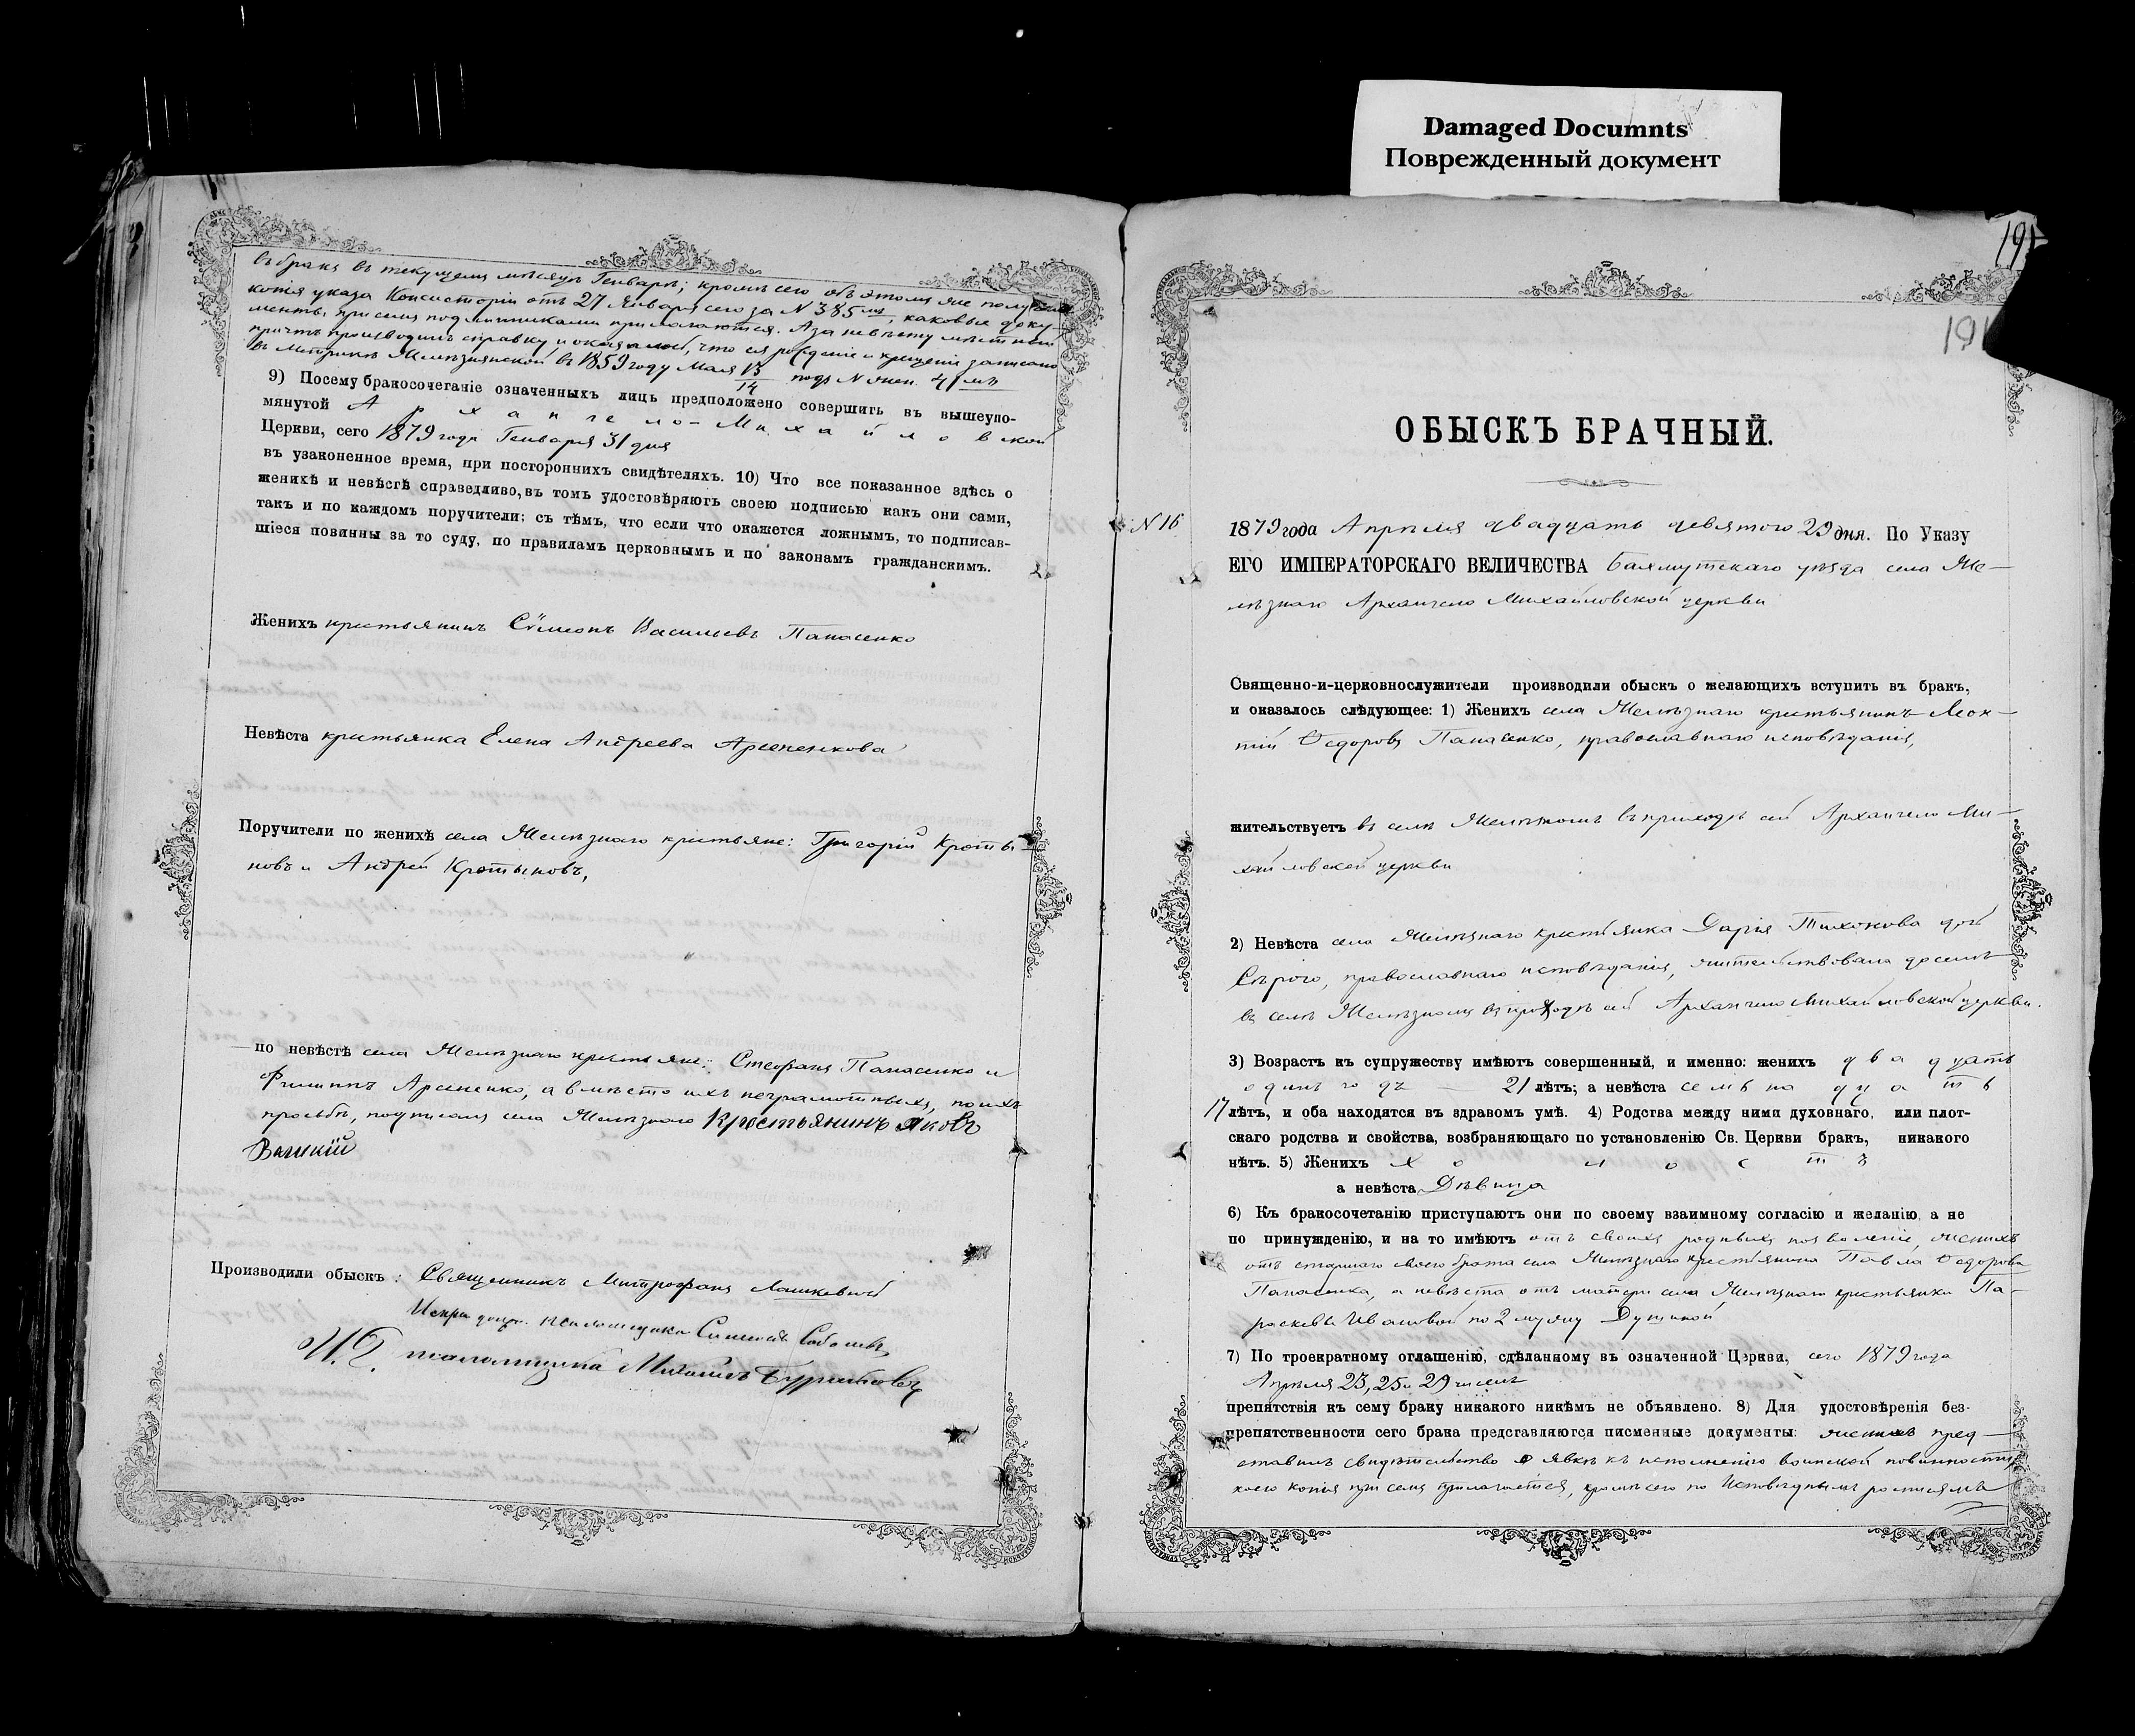 Damaged Documnts
Поврежденный документ
въ бракъ въ текущемъ мѣсяцѣ Генварѣ; кромѣ сего объ этомъ же получена
копія указа Консисторіи отъ 27 Января сего за N 385мъ, каковые доку-
менты при семъ подлинниками прилагаются. А за невѣсту мѣстный
причтъ производилъ справку, и оказалось, что ея рожденіе и крещеніе записано
въ Метрикѣ Желѣзнянской въ 1859 году Мая 13/14 подъ N жен. 41мъ
9) Посему бракосочетаніе означенныхъ лицъ предположено совершить въ вышеупо-
мянутой Архангело-Михайловской
Церкви, сего 1879 года Генваря 31 дня
въ узаконенное время, при постороннихъ свидѣтеляхъ. 10) Что все показанное здѣсь о
женихѣ и невѣстѣ справедливо, въ томъ удостовѣряютъ своею подписью какъ они сами,
такъ и по каждомъ поручители; съ тѣмъ, что если что окажется ложнымъ, то подписав-
шіеся повинны за то суду, по правиламъ церковнымъ и по законамъ гражданскимъ.
Женихъ крестьянинъ Сѵмеонъ Васильевъ Панасенко
Невѣста крестьянка Елена Андреева Арсененкова
Поручители по женихѣ села Желѣзнаго крестьяне: Григорій Кроты-
новъ и Андрей Кротыновъ,
по невѣстѣ села Желѣзнаго крестьяне: Стефанъ Панасенко и
Филиппъ Арсененко, а вмѣсто ихъ неграмотныхъ, по ихъ
просьбѣ, подписалъ села Желѣзнаго Крестьянинъ Яковъ
Производили обыскъ: Священникъ Митрофанъ Лашкевичъ
псаломщика Симеонъ
И. Д. псаломщика Михаилъ
191
191
ОБЫСКЪ БРАЧНЫЙ.
N 16
1879 года Апрѣля двадцать девятого 29 дня. По Указу
ЕГО ИМПЕРАТОРСКАГО ВЕЛИЧЕСТВА Бахмутскаго уѣзда села Же-
лѣзнаго Архангело Михайловской церкви
Священно-и-церковнослужители производили обыскъ о желающихъ вступить въ бракъ,
и оказалось слѣдующее: 1) Женихъ села Желѣзнаго крестьянинъ Леон-
тій Ѳедоровъ Панасенко, православнаго исповѣданія,
жительствуетъ въ селѣ Желѣзномъ въ приходѣ сей Архангело Ми-
хайловской церкви
2) Невѣста села Желѣзнаго крестьянка Дарія Тихонова дочь
Сѣрого, православнаго исповѣданія, жительствовала доселѣ
въ селѣ Желѣзномъ въ приходѣ сей Архангело Михайловской церкви.
3) Возрастъ къ супружеству имѣютъ совершенный, и именно: женихъ двадцать
одинъ годъ — 21 лѣтъ; а невѣста семьнадцать
17 лѣтъ, и оба находятся въ здравомъ умѣ. 4) Родства между ними духовнаго, или плот-
скаго родства и свойства, возбраняющаго по установленію Св. Церкви бракъ, никакого
нѣтъ. 5) Женихъ холостъ
а невѣста Дѣвица
6) Къ бракосочетанію приступаютъ они по своему взаимному согласію и желанію, а не
по принужденію, и на то имѣютъ отъ своихъ родныхъ позволеніе, женихъ
отъ старшаго своего брата села Желѣзнаго крестьянина Павла Ѳедорова
Панасенка, а невѣста отъ матери села Желѣзнаго крестьянки Па-
раскевы Ивановой по 2 мужу
7) По троекратному оглашенію, сдѣланному въ означенной Церкви, сего 1879 года
Апрѣля 23, 25 и 29 чиселъ
препятствія къ сему браку никакого никѣмъ не объявлено. 8) Для удостовѣренія без-
препятственности сего брака представляются писменные документы: женихъ пред-
ставилъ свидѣтельство о явкѣ къ исполненію воинской повинности,
коего копія при семъ прилагается, кромѣ сего по Исповѣднымъ росписямъ